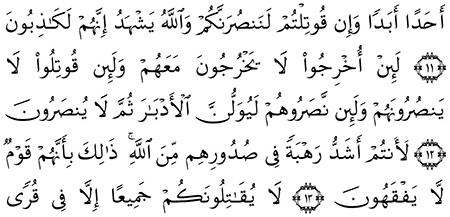 أَحَدًا أَبَدًا وَإِن قُوتِلْتُمْ لَنَنصُرَنَّكُمْ وَٱللَّهُ يَشْهَدُ إِنَّهُمْ لَكَـٰذِبُونَ
﴿١١﴾ لَئِنْ أُخْرِجُوا۟ لَا يَخْرُجُونَ مَعَهُمْ وَلَئِن قُوتِلُوا۟ لَا
يَنصُرُونَهُمْ وَلَئِن نَّصَرُوهُمْ لَيُوَلُّنَّ ٱلْأَدْبَـٰرَ ثُمَّ لَا يُنصَرُونَ
﴿١٢﴾ لَأَنتُمْ أَشَدُّ رَهْبَةً فِى صُدُورِهِم مِّنَ ٱللَّهِ ۚ ذَٰلِكَ بِأَنَّهُمْ قَوْمٌ
لَّا يَفْقَهُونَ ﴿١٣﴾ لَا يُقَـٰتِلُونَكُمْ جَمِيعًا إِلَّا فِى قُرًى